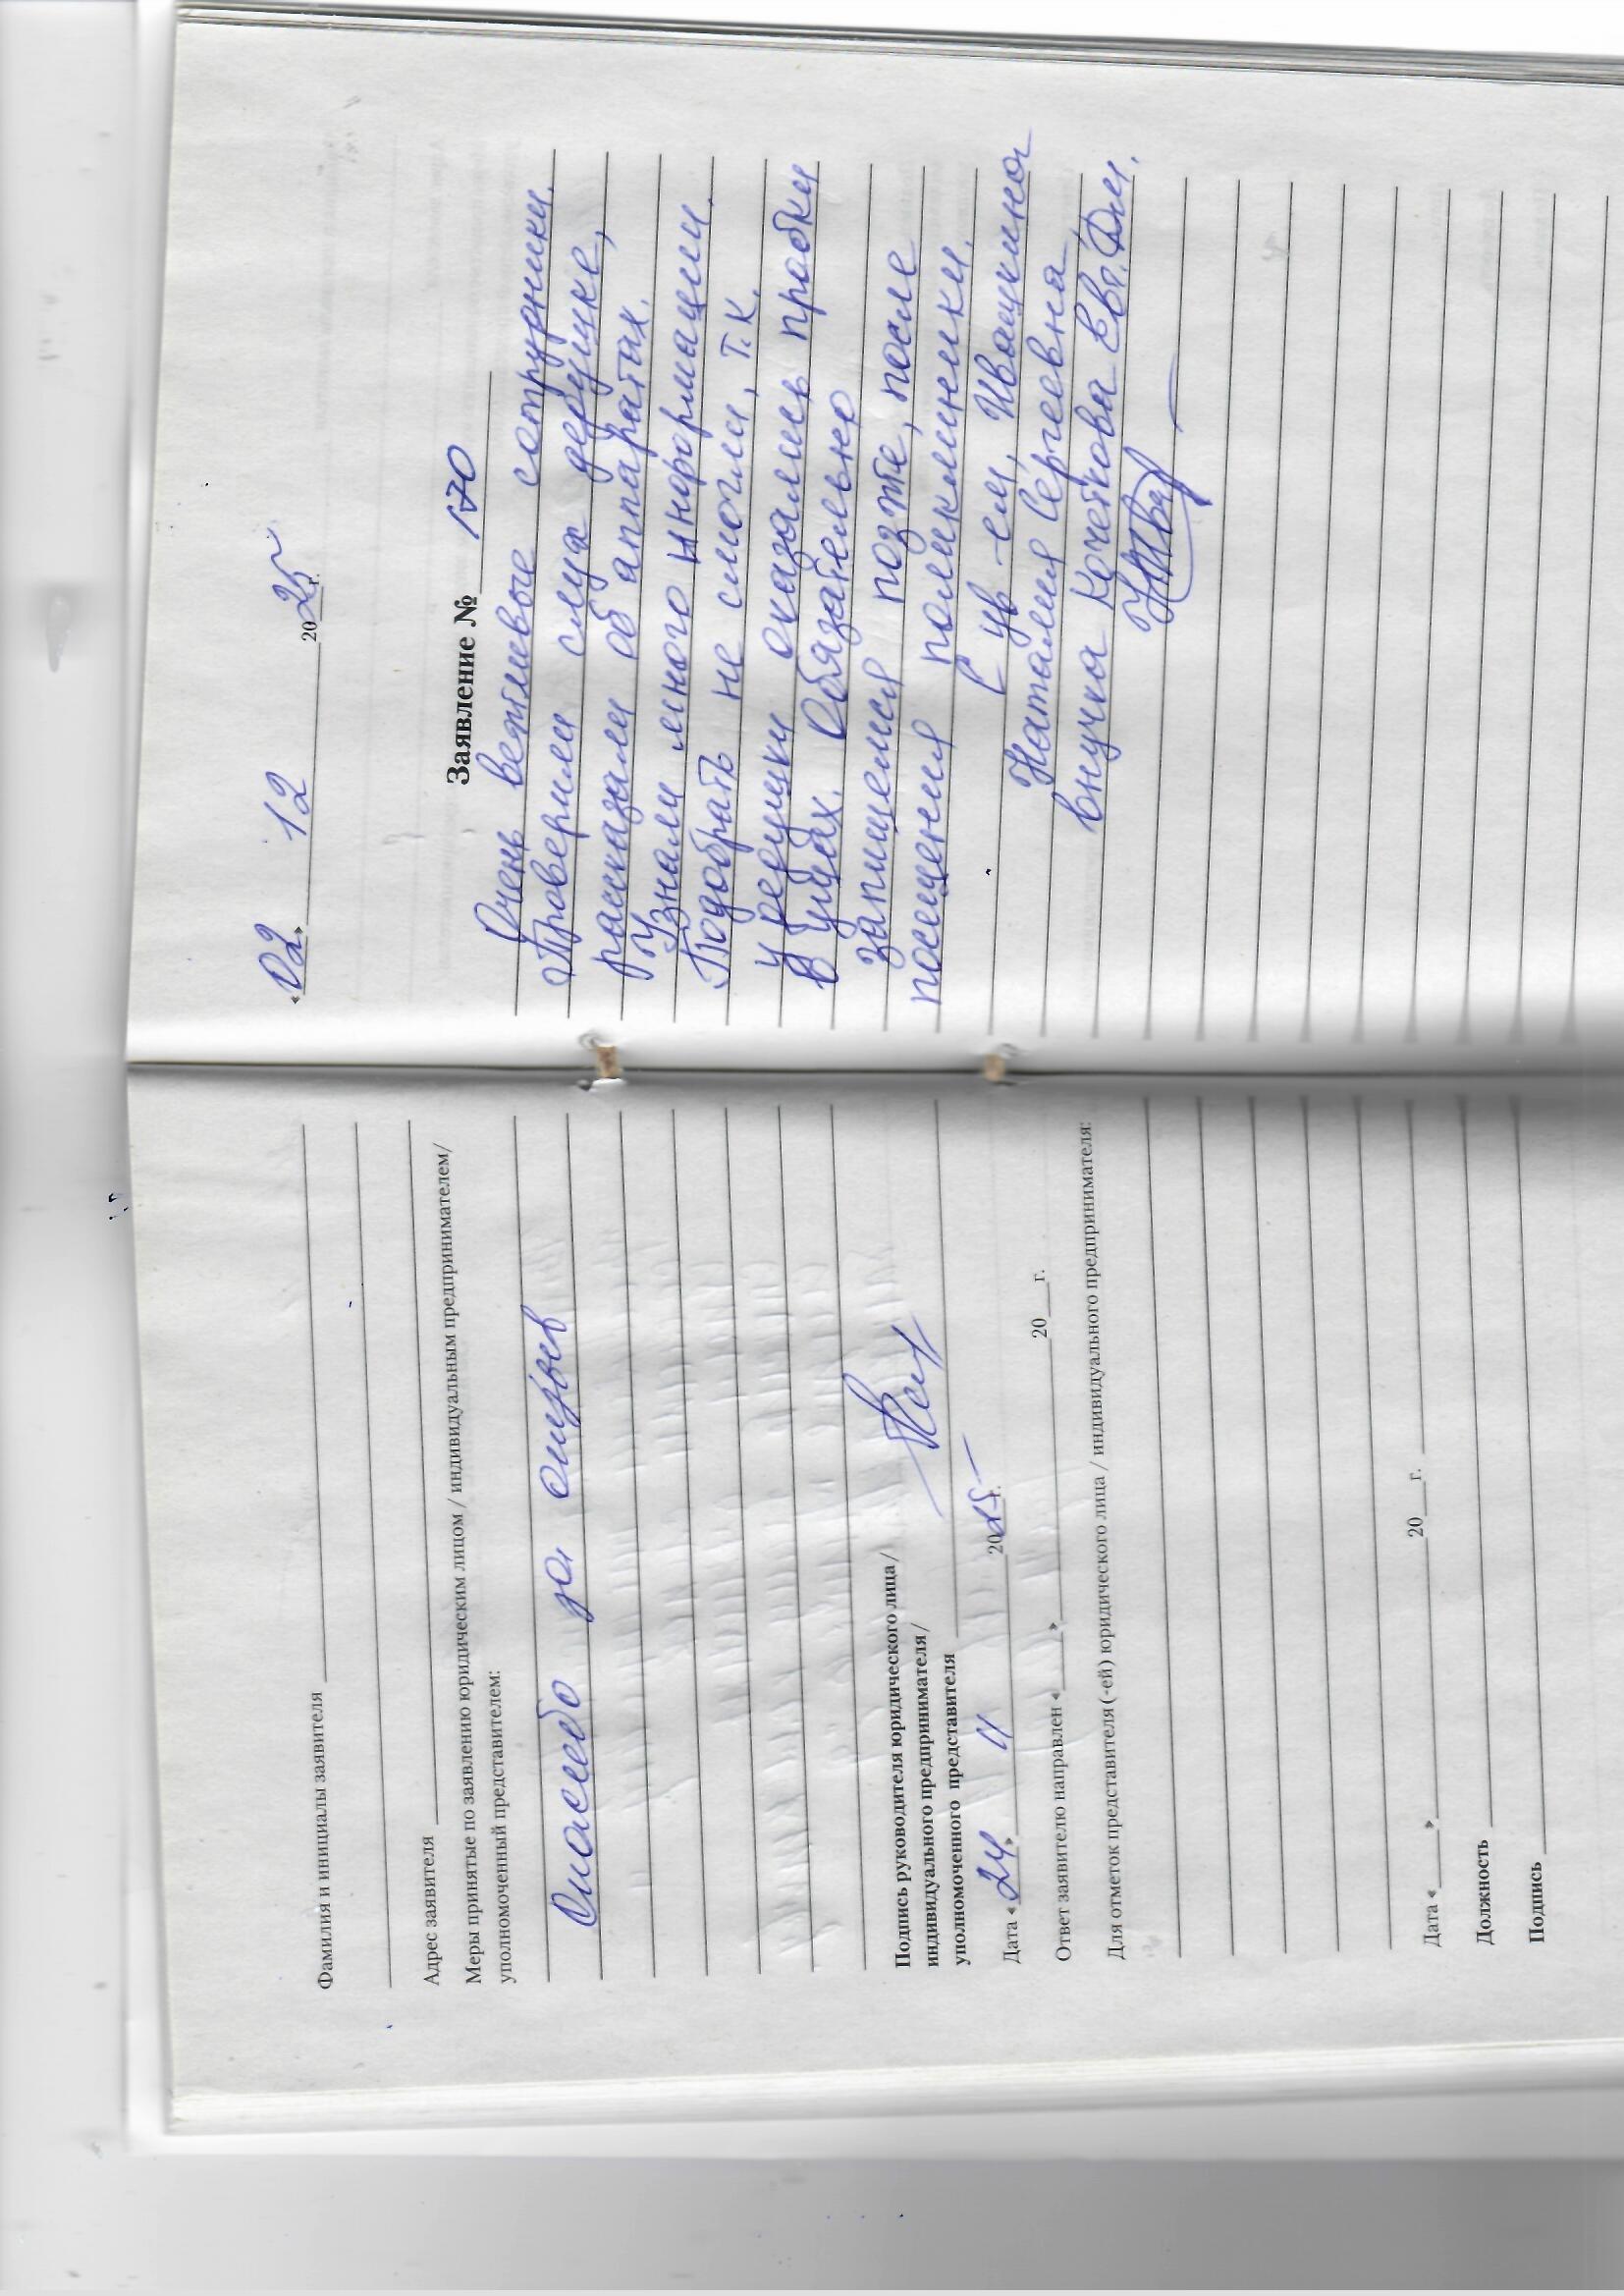 Фамилия и инициалы заявителя
Адрес заявителя
Меры принятые по заявлению юридическим лицом / индивидуальным предпринимателем/
уполномоченный представителем:
Спасибо за отзыв
Подпись руководителя юридического лица/
индивидуального предпринимателя/
уполномоченного представителя
Дата «24» 11 2025 г.
Ответ заявителю направлен «___» 20___г.
Для отметок представителя (-ей) юридического лица / индивидуального предпринимателя:
Дата «___» 20___г.
Должность
Подпись
«02» 12 2025 г.
Заявление № 170
Очень вежливые сотрудники.
Проверили слух дедушке,
рассказали об аппаратах.
Узнали много информации.
Подобрать не смогли, т.к.
у дедушки оказались пробки
в ушах. Обязательно
запишемся позже, после
посещения поликлиники.
С ув-ем, Ивашкина
Наталия Сергеевна,
внучка Кочеткова Евг. Дм.